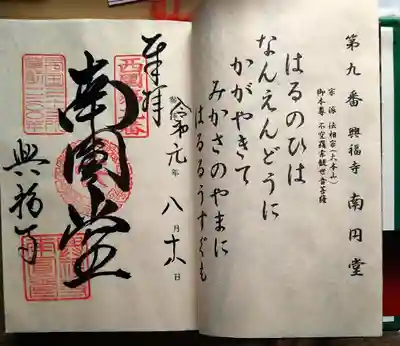 第九番 興福寺 南円堂
宗派 法相宗(大本山)
御本尊 不空羂索観世音菩薩
はるのひは
なんえんどうに
かがやきて
みかさのやまに
はるるうすぐも
奉拝
令和元年 八月 日
南圓堂
興福寺